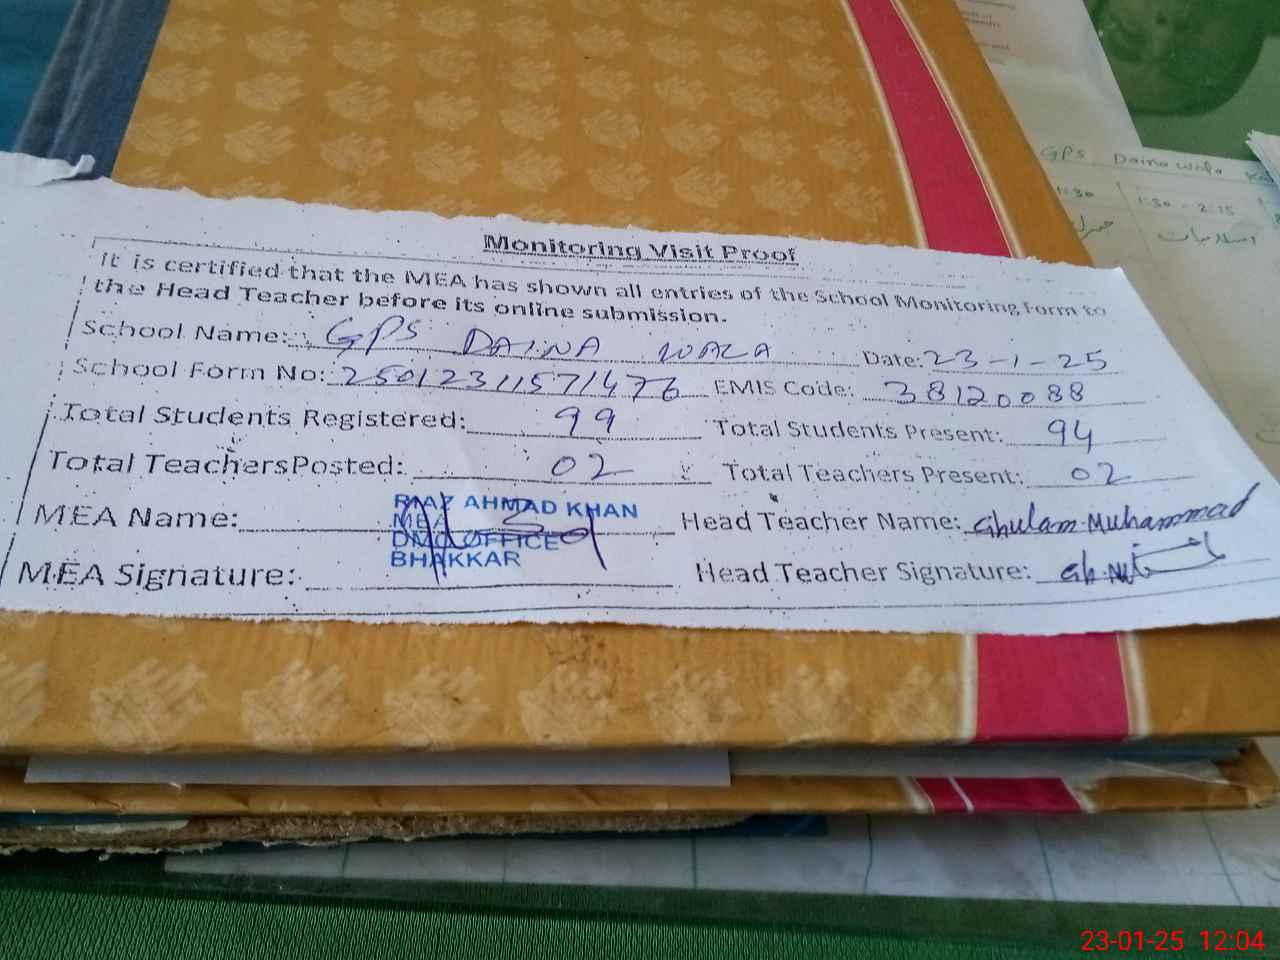 GPS Daina wala
1:30 1:30 - 2:15
اسلامیات
Monitoring Visit Proof
It is certified that the MEA has shown all entries of the School Monitoring Form to
the Head Teacher before its online submission.
School Name: GPS DAINA WALA Date: 23-1-25
School Form No: 25012311571476 EMIS Code: 38120088
Total Students Registered: 99 Total Students Present: 94
Total TeachersPosted: 02 Total Teachers Present: 02
MEA Name: RIAZ AHMAD KHAN Head Teacher Name: Ghulam Muhammad
MEA
DMO OFFICE
BHAKKAR
MEA Signature: Head Teacher Signature:
23-01-25 12:04